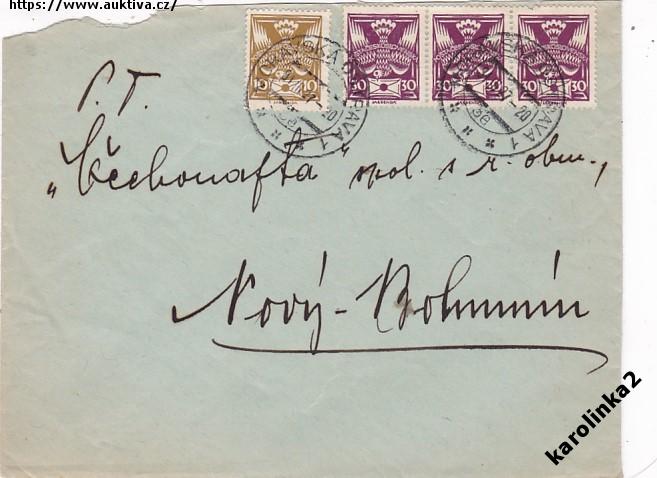 https://www.auktiva.cz/
10 10
30 30 30 30 30 30
P. T.
„Čechonafta" spol. s r. obm.,
Nový-Bohumín
karolinka2